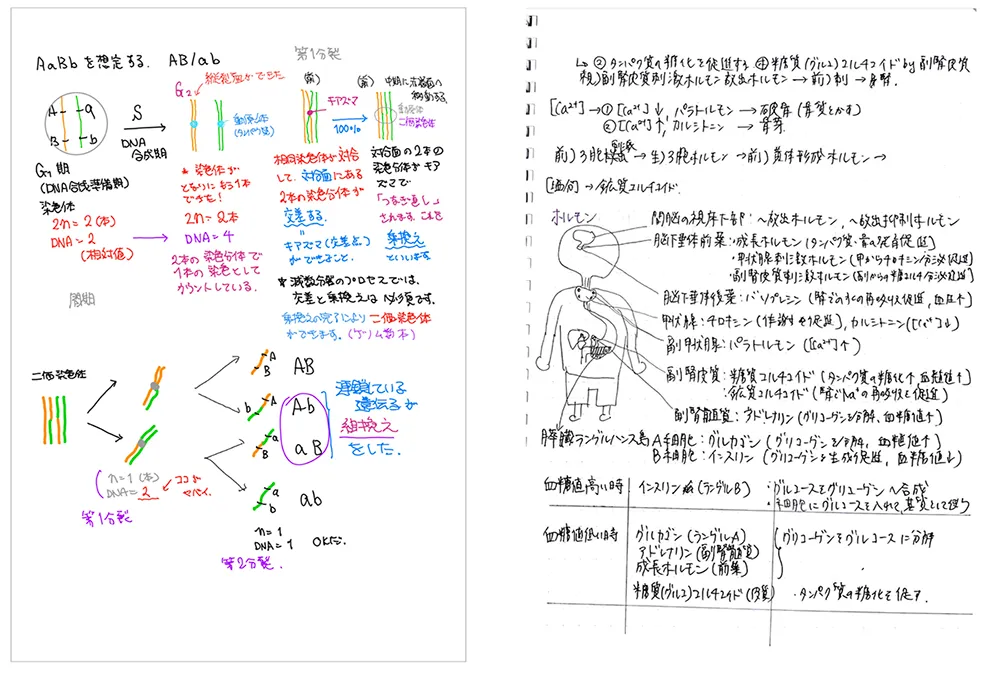 AaBb を想定する. AB/ab
第1分裂
A a
B b
S
DNA
合成期
G₁ 期
(DNA合成準備期)
染色体
2n = 2 (本)
DNA = 2
(相対値)
間期
G₂
動原体
(タンパク質)
* 染色体が
となりにもう1本
できた!
2n = 2本
DNA = 4
2本の染色分体で
1本の染色として
カウントしている.
(前)
キアズマ
100%
(前)
中期に赤道面の
二価染色体
相同染色体が対合
して. 対合面にある
2本の染色分体が
交差する.
キアズマ(交差点)
ができること.
対合面の2本の
染色分体がキア
ズマで
「つなぎ直し」
されます. これを
乗換え
といいます.
* 減数分裂のプロセスでは,
交差と乗換えは必須です.
乗換えの完了により二価染色体
ができます.
二価染色体
n = 1 (本)
DNA = 2
ココが
ヤバイ.
第1分裂
A
B
AB
A
b
Ab
a
B
aB
a
b
ab
連鎖している
遺伝子が
組換え
をした.
n = 1
DNA = 1 OKだ.
第2分裂.
② タンパク質の糖化を促進する ④ 糖質(グルコ)コルチコイド by 副腎皮質
[Ca²⁺] → ① [Ca²⁺]↓, パラトルモン → 破骨 (骨質とかす)
② [Ca²⁺]↑, カルシトニン → 骨芽
前) ろ胞刺激 → 生) ろ胞ホルモン → 前) 黄体形成ホルモン →
→ 鉱質コルチコイド.
ホルモン
間脳の視床下部 : ~放出ホルモン, ~放出抑制ホルモン
脳下垂体前葉 : 成長ホルモン (タンパク質・骨の発育促進)
・甲状腺刺激ホルモン (甲からチロキシン分泌促進)
・副腎皮質刺激ホルモン (副からの糖コルチ分泌促進)
脳下垂体後葉 : バソプレシン (腎での水の再吸収を促進, 血圧↑)
甲状腺 : チロキシン (代謝を促進), カルシトニン ([Ca²⁺]↓)
副甲状腺 : パラトルモン ([Ca²⁺]↑)
副腎皮質 : 糖質コルチコイド (タンパク質の糖化↑ 血糖値↑)
: 鉱質コルチコイド (腎でNa⁺の再吸収を促進)
副腎髄質 : アドレナリン (グリコーゲンを分解, 血糖値↑)
膵臓ランゲルハンス島 A細胞 : グルカゴン (グリコーゲンを分解, 血糖値↑)
B細胞 : インスリン (グリコーゲンを生成促進, 血糖値↓)
血糖値高い時 インスリン (ランゲルB) ・グルコースをグリコーゲンへ合成
・細胞にグルコースを入れて, 基質として使う
血糖値低い時 グルカゴン (ランゲルA) グリコーゲンをグルコースに分解
アドレナリン (副腎髄質)
成長ホルモン (前葉)
糖質(グルコ)コルチコイド (皮質) ・タンパク質の糖化を促す.